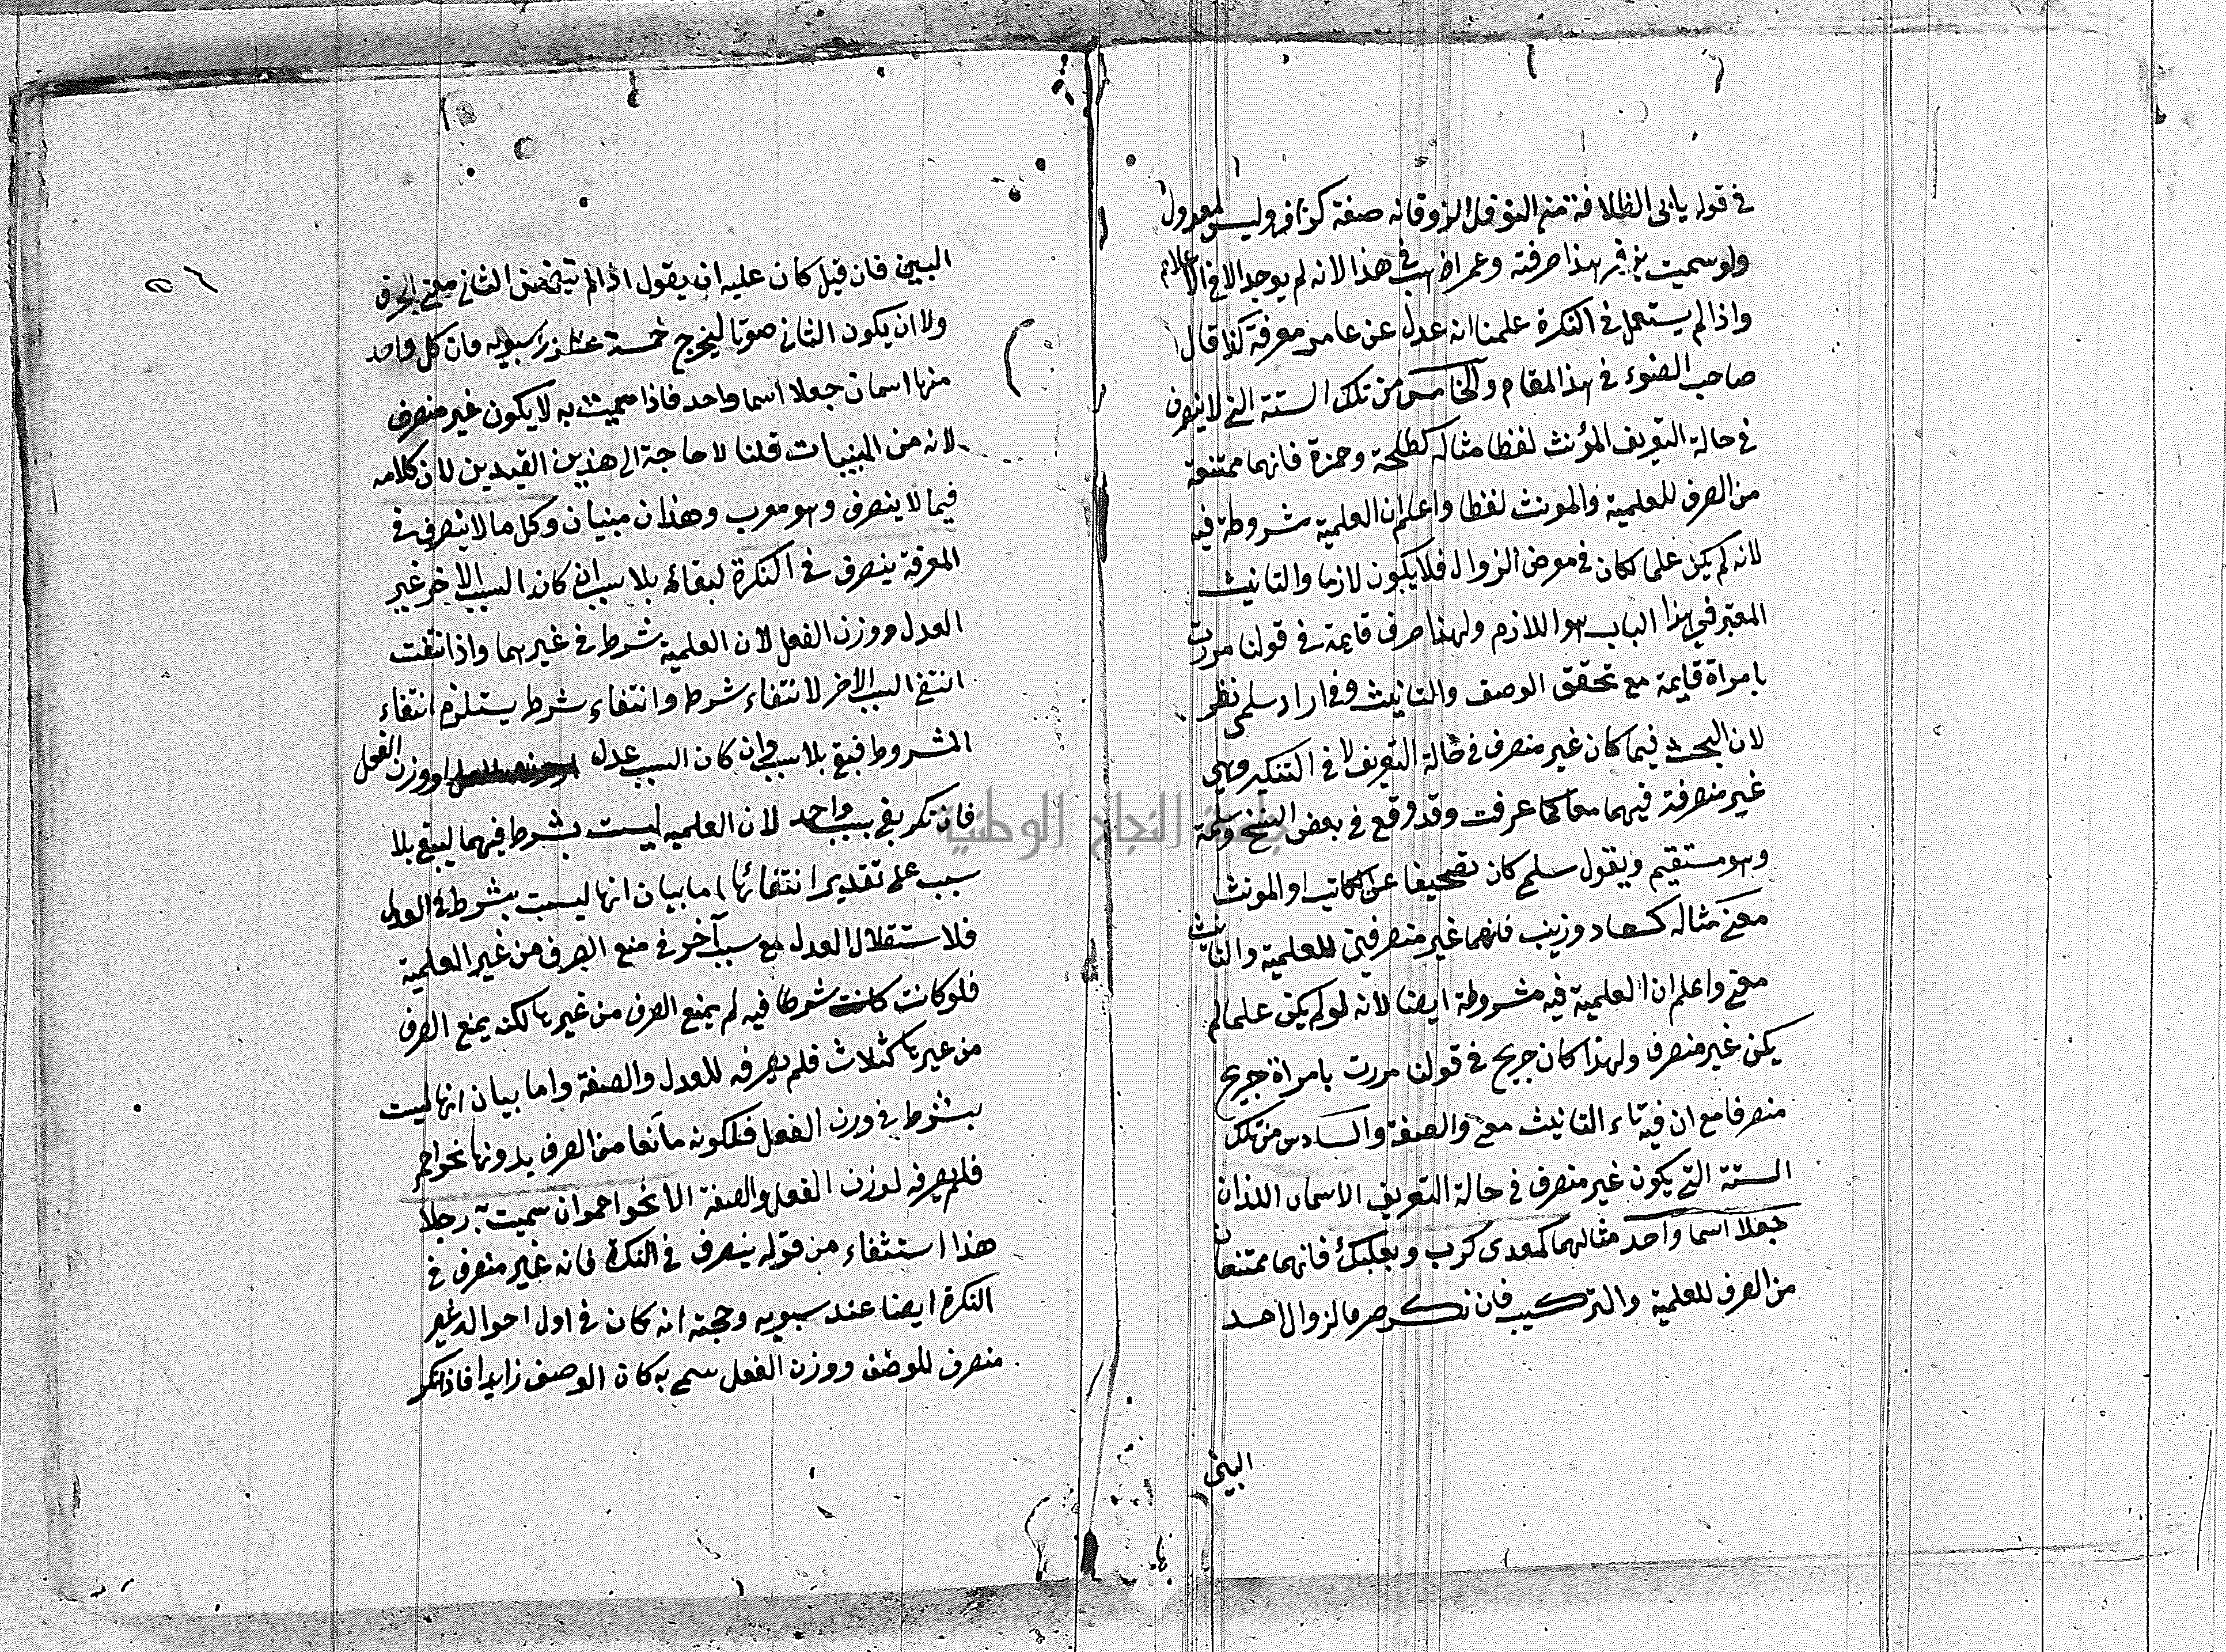 في قوله يابى الظلامة منه النوفل الزفر فانه صفة كزافر وليس بمعدول
ولو سميت بزفر هذا صرفته وعمر اظهر في هذا لانه لم يوجد الا في الاعلام
واذا لم يستعمل في النكرة علمنا انه عدل عن عامر معرفة كذا قال
صاحب الضوء في هذا المقام والخامس من تلك الستة التي لا ينصرف
في حالة التعريف المؤنث لفظا مثاله كطلحة وحمزة فانهما ممتنعة
من الصرف للعلمية والمونث لفظا واعلم ان العلمية شروطة فيه
لانه لم يكن علما لكان في موض الزوال فلا يكون لازما والتانيث
المعتبر في هذا الباب هو اللازم ولهذا صرف قايمة في قولنا مررت
بامراة قايمة مع تحقق الوصف والتانيث وفي اراد سلمى نظر
لان البحث فيما كان غير منصرف في حالة التعريف لا في التنكير وهي
غير منصرفة فيهما معا كما عرفت وقد وقع في بعض النسخ وسلمة
وهو مستقيم ويقول سلمى كان تصحيفا عن الكاتب او المونث
معنى مثاله كسعاد وزينب فانهما غير منصرفين للعلمية والتانيث
معنى واعلم ان العلمية فيه مشروطة ايضا لانه لو لم يكن علما لم
يكن غير منصرف ولهذا كان جريح في قولنا مررت بامراة جريح
منصرفا مع ان فيه تاء التانيث معنى والصفة والسادس من تلك
الستة التي يكون غير منصرف في حالة التعريف الاسمان اللذان
جعلا اسما واحد مثالهما كمعدى كرب وبعلبك فانهما ممتنعان
من الصرف للعلمية والتركيب فان نكر صرفا لزوال احد
البين
٥٦
البين فان قيل كان عليه ان يقول اذا لم يتضمن الثاني معنى الحرف
ولا ان يكون الثاني صوتا ليخرج خمسة عشر وسيبويه فان كل واحد
منها اسمان جعلا اسما واحد فاذا سميت به لا يكون غير منصرف
لانه من المبنيات قلنا لا حاجة الى هذين القيدين لان كلامه
فيما لا ينصرف وهو معرب وهذان مبنيان وكل ما لا ينصرف في
المعرفة ينصرف في النكرة لبقائه بلا سبب ان كان السبب الاخر غير
العدل ووزن الفعل لان العلمية شرط في غيرهما واذا انتفت
انتفى السبب الاخر لانتفاء شرط وانتفاء شرط يستلزم انتفاء
المشروط فبقي بلا سبب وان كان السبب عدل او وزن الفعل
فان نكر بقي بسبب واحد لان العلميه ليست بشرط فيهما ليبقى بلا
سبب على تقدير انتفائها اما بيان انها ليست بشرط في العدل
فلاستقلال العدل مع سبب آخر في منع الصرف من غير العلمية
فلو كانت كانت شرطا فيه لم يمنع الصرف من غيرها لكنه يمنع الصرف
من غيرها كثلاث فلم يصرفه للعدل والصفة واما بيان انها ليست
بشرط في وزن الفعل فلكونه مانعا من الصرف بدونها نحو احمر
فلم يصرفه لوزن الفعل والصفة الا نحو احمر ان سميت به رجلا
هذا استثناء من قوله ينصرف في النكرة فانه غير منصرف في
النكرة ايضا عند سبويه وحجته انه كان في اول احواله غير
منصرف للوصف ووزن الفعل سمى به كان الوصف زايدا فاذا نكر
جامعة النجاح الوطنية